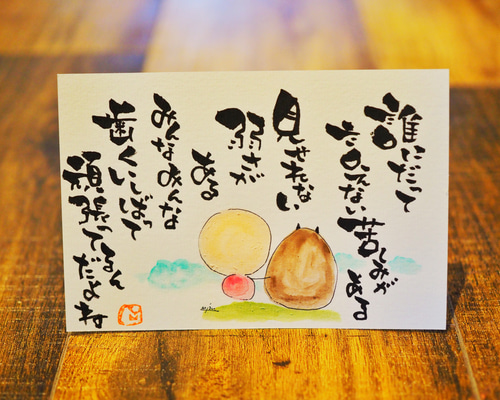 誰にだって
言えない苦しみがある
見せれない
弱さが
ある
みんなみんな
歯くいしばって
頑張ってるん
だよね